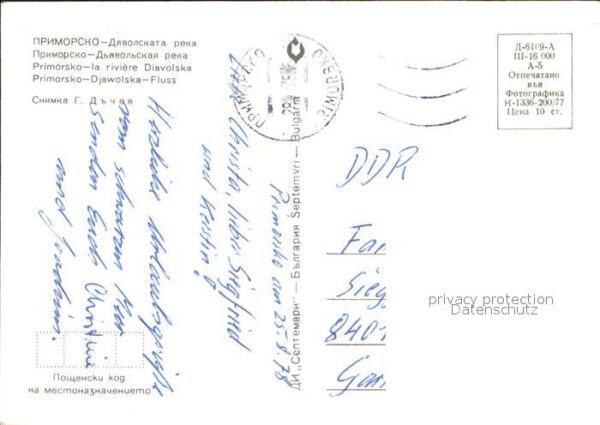 ПРИМОРСКО—Дяволската река
Приморско—Дьявольская река
Primorsko—la rivière Diavolska
Primorsko—Djawolska—Fluss
Снимка Г. Дъчев
Primorsko am 25.8.78
Liebe Christa, lieber Siegfried
und Kerstin!
Herzliche Urlaubsgrüße
vom schwarzen Meer
senden Euch Christine
und Joachim.
Пощенски код
на местоназначението
ДИ „Септември" — България Septemvri — Bulgaria
ПРИМОРСКО
PRIMORSKO
Д-6109-А
III-16 000
А-5
Отпечатано
във
Фотографика
К-1336-200/77
Цена 10 ст.
DDR
Fam
Sieg
8401
privacy protection
Datenschutz